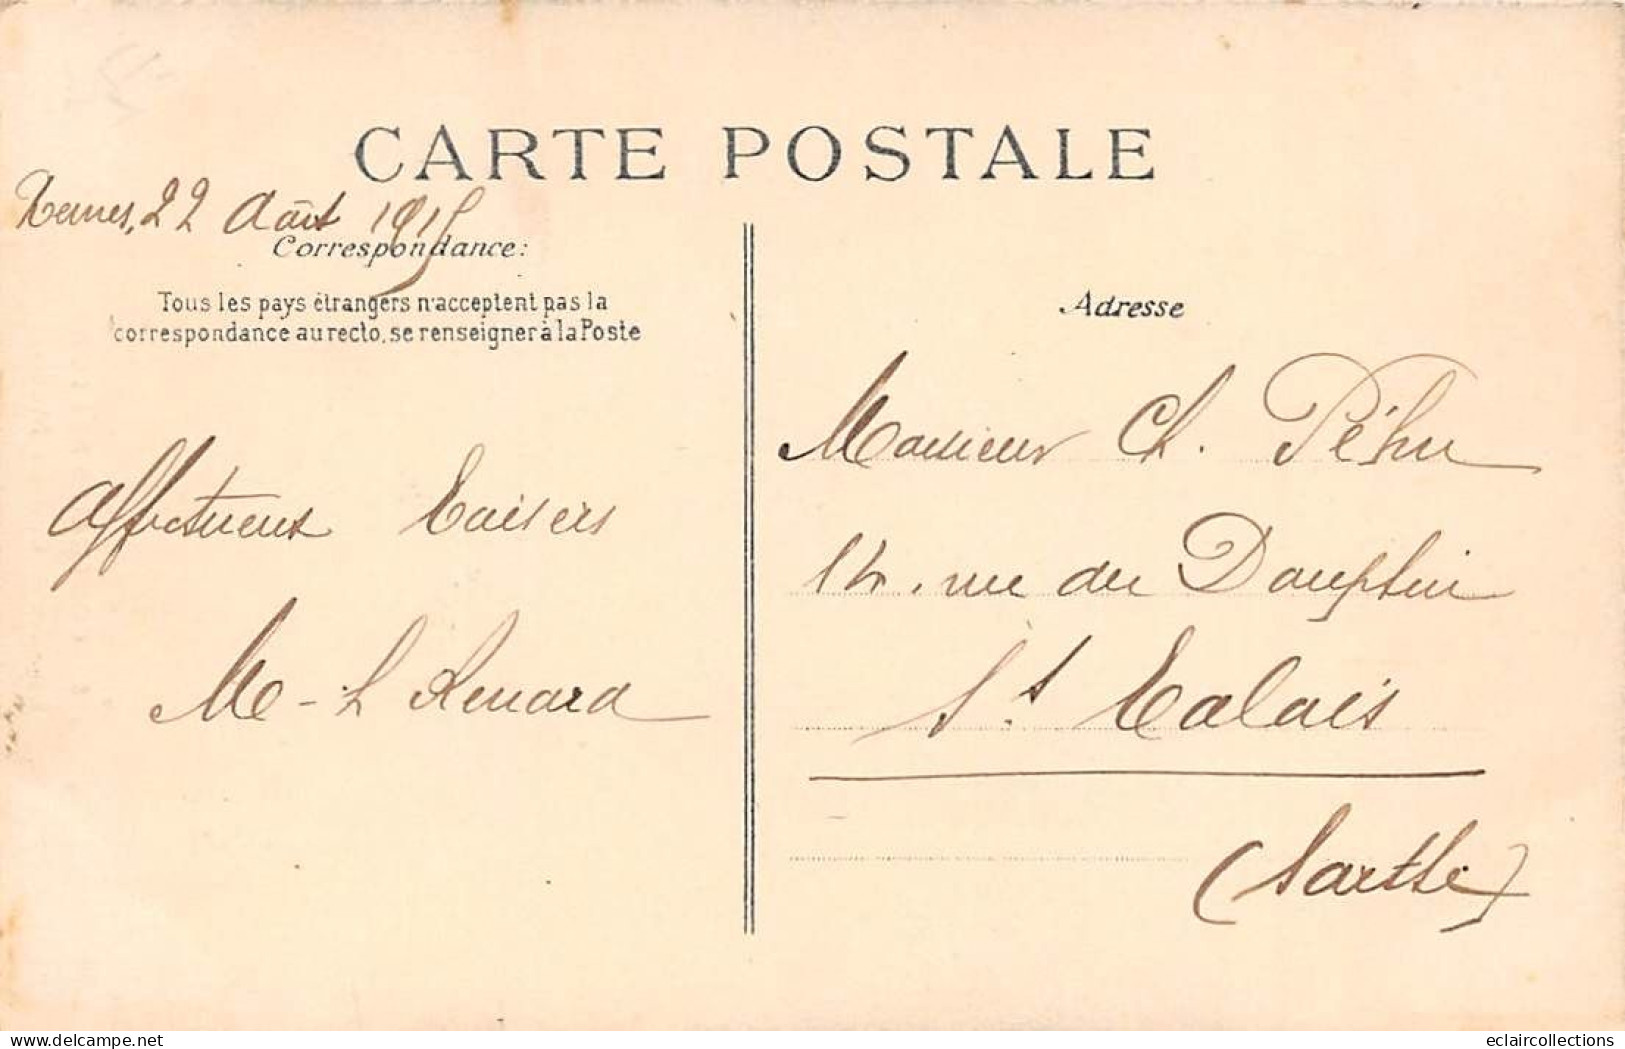 CARTE POSTALE
22 Août 1915
Correspondance:
Tous les pays étrangers n'acceptent pas la
correspondance au recto, se renseigner à la Poste
Adresse
Affectueux baisers
M-L Renard
Monsieur Ch. Péhu
rue du Dauphin
St Calais
(Sarthe)
eclaircollections